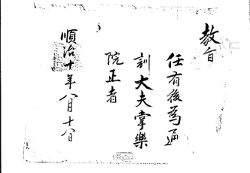 教旨
任有後為通
訓大夫掌樂
院正者
順治十年八月十八日